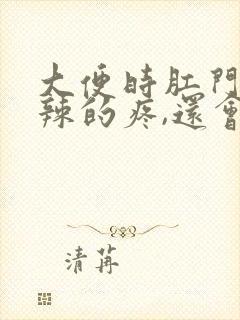 大便時肛門
辣的疼,還會
清苒